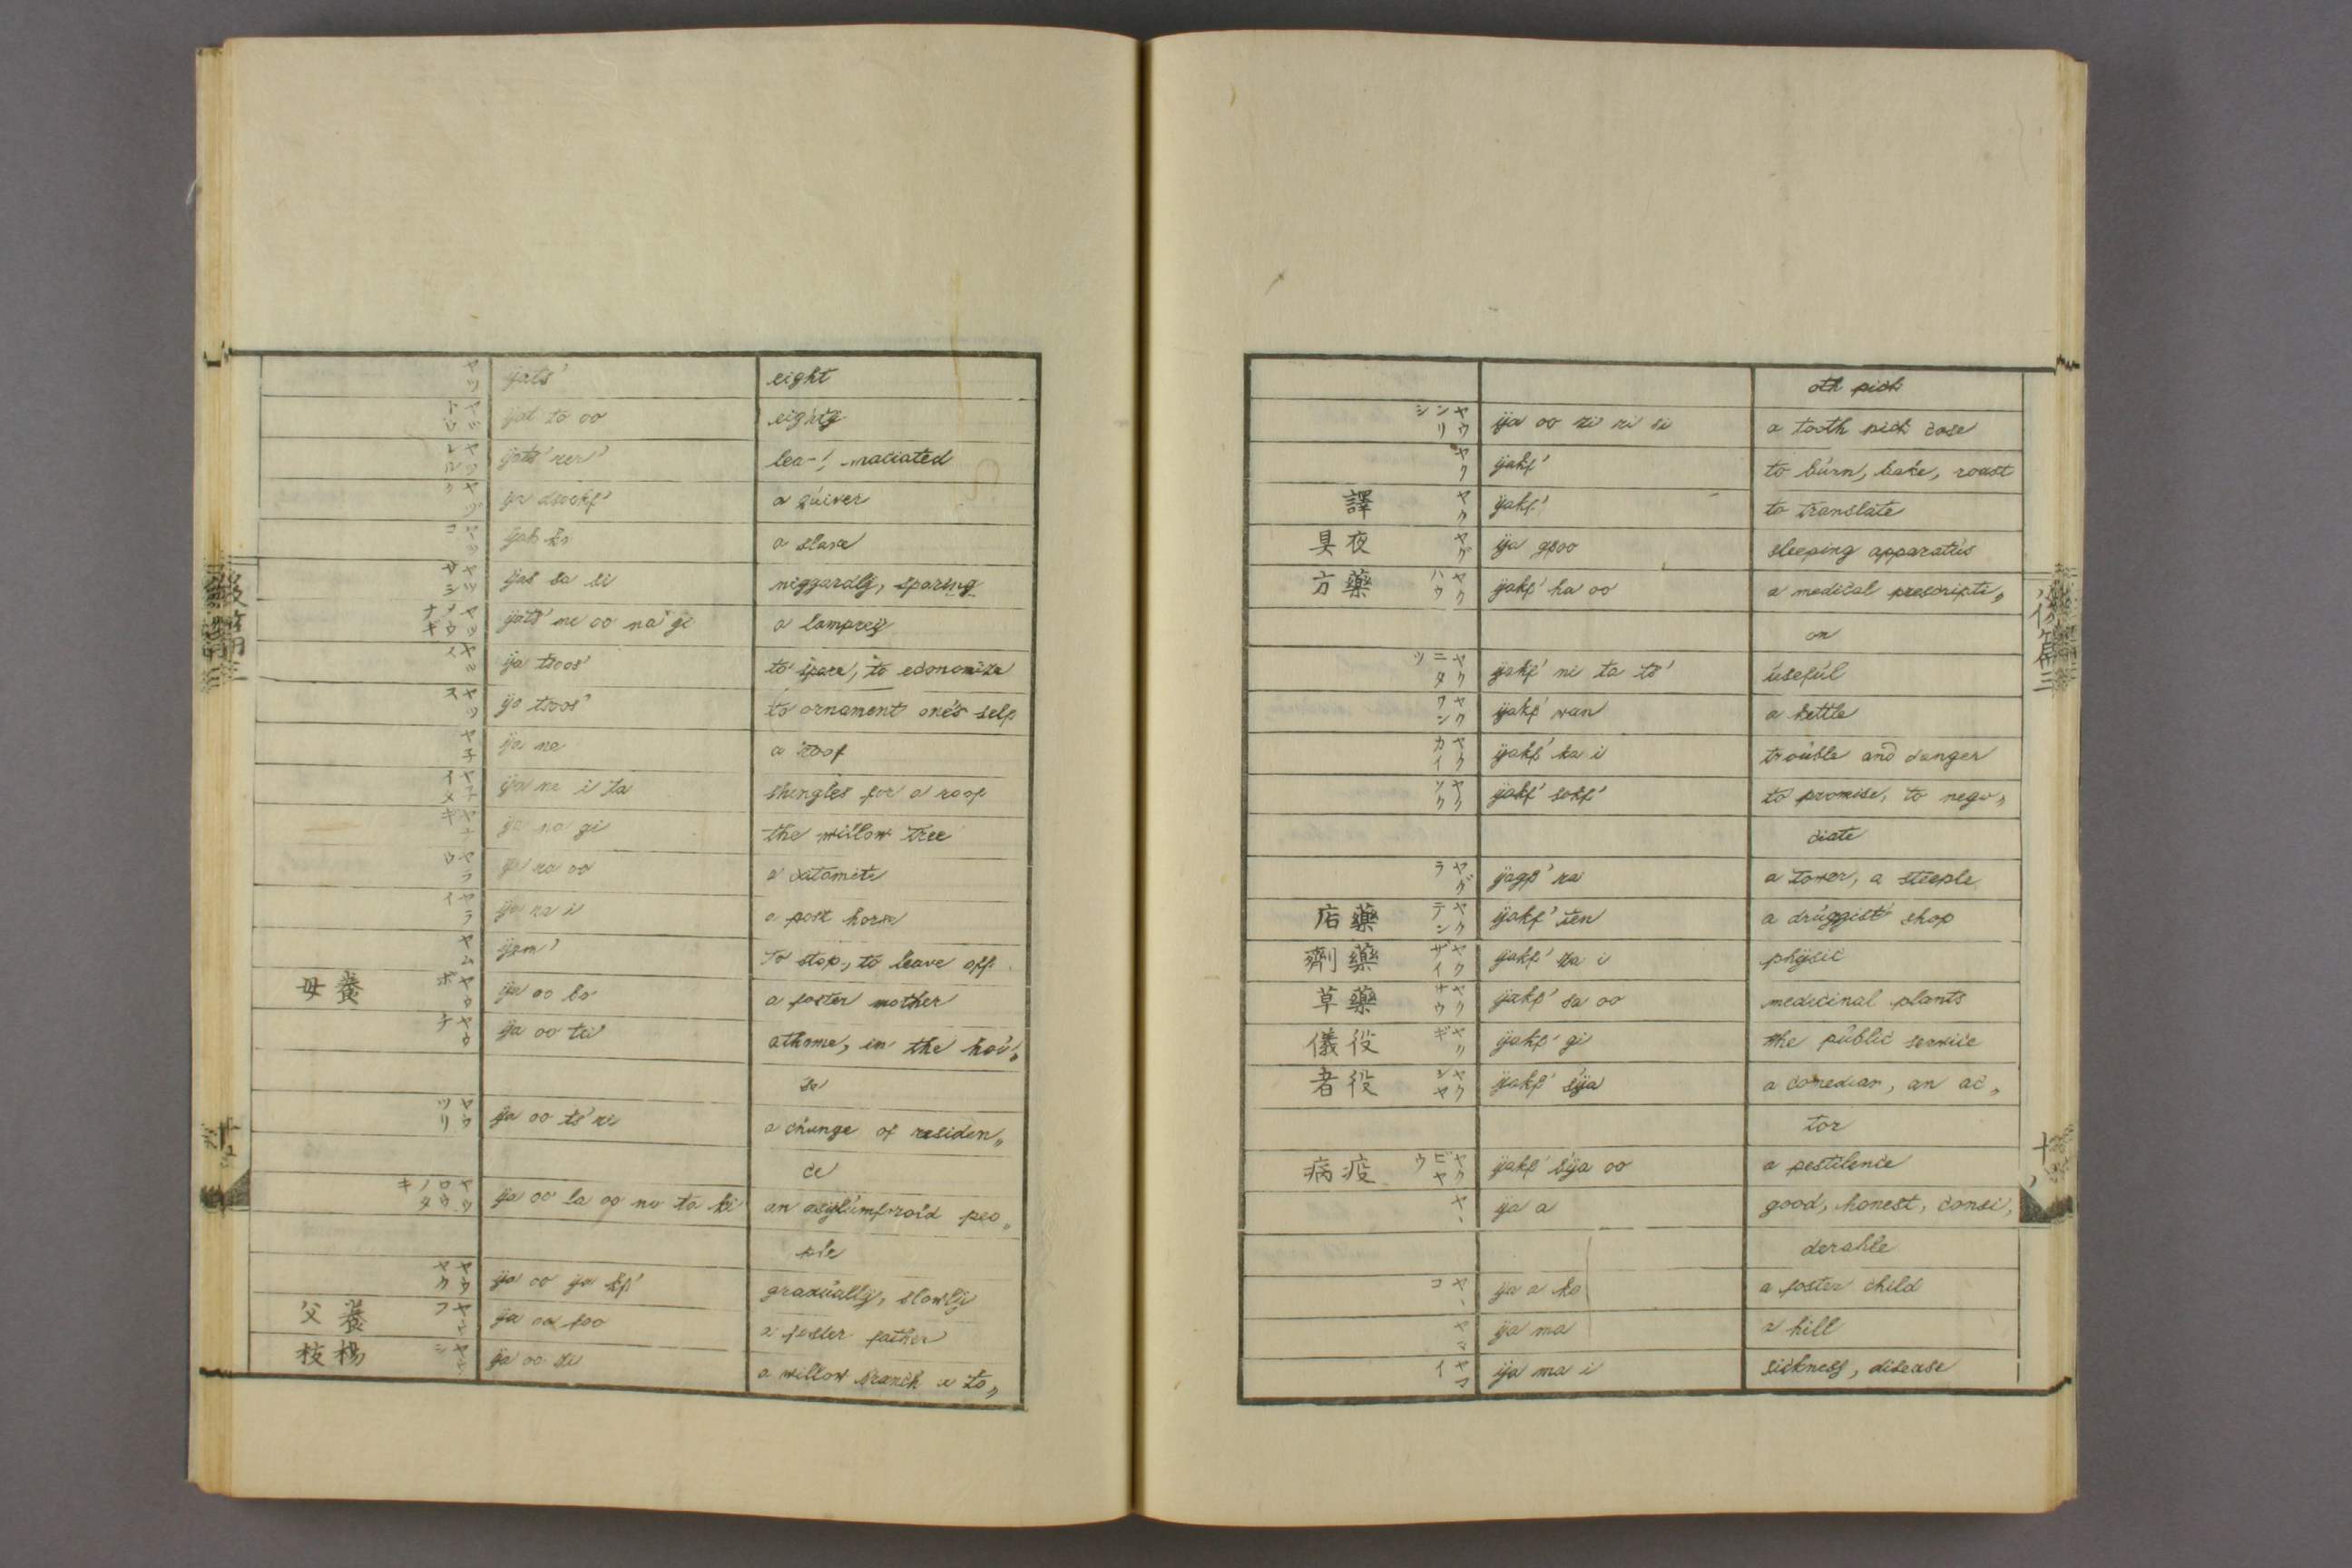 ヤツ ijats' eight
ヤツトウ ijat to oo eighty
ヤツレル ijats' rer' maciated
ヤヅク ija dsookf' a quiver
ヤツコ ijak ko a slave
ヤツサシ ijas sa si niggardly, sparing
ヤツメウナギ ijats' me oo na gi a lamprey
ija tsoos' to spare, to economise
ヤツス ija tsoos' to ornament one's self
ヤ子 ija ne a roof
ヤ子イタ ija ne i ta shingles for a roof
ヤナギ ija na gi the willow tree
ヤラウ ija ra oo a catamite
ヤライ ija ra i a post horse
ヤム ijam' to stop, to leave off
養母 ヤウボ ija oo bo a foster mother
ヤウチ ija oo tsi athome, in the hou„
se
ヤウツリ ija oo ts' ri a change of residen„
ce
ija oo la oo no ta ki an asylumfrold peo„
ple
ヤウヤク ija oo ija kf' gradually, slowly
養父 ヤウフ ija oo foo a foster father
楊枝 ヤウシ ija oo zi a willow branch a to„
oth pick
ヤウシンリ ija oo zi ri si a tooth pick case
ヤク ijakf' to burn, bake, roast
譯 ヤク ijakf' to translate
夜具 ヤグ ija gpoo sleeping apparatus
藥方 ヤクハウ ijakf' ha oo a medical prescripti„
on
ヤクニタツ ijakf' ni ta ts' useful
ヤクワン ijakf' wan a kettle
ヤクカイ ijakf' ka i trouble and danger
ヤクソク ijakf' sokf' to promise, to nego„
ciate
ヤグラ ijagf' ra a tower, a steeple
藥店 ヤクテン ijakf' ten a druggist shop
藥劑 ヤクザイ ijakf' za i physic
藥草 ヤクサウ ijakf' sa oo medicinal plants
役儀 ヤクギ ijakf' gi the public service
役者 ヤクシヤ ijakf' sija a comedian, an ac„
tor
疫病 ヤクビヤウ ijakf' bija oo a pestilence
ヤヽ ija a good, honest, consi„
derable
ヤヽコ ija a ko a foster child
ヤマ ija ma a hill
ヤマイ ija ma i sickness, disease